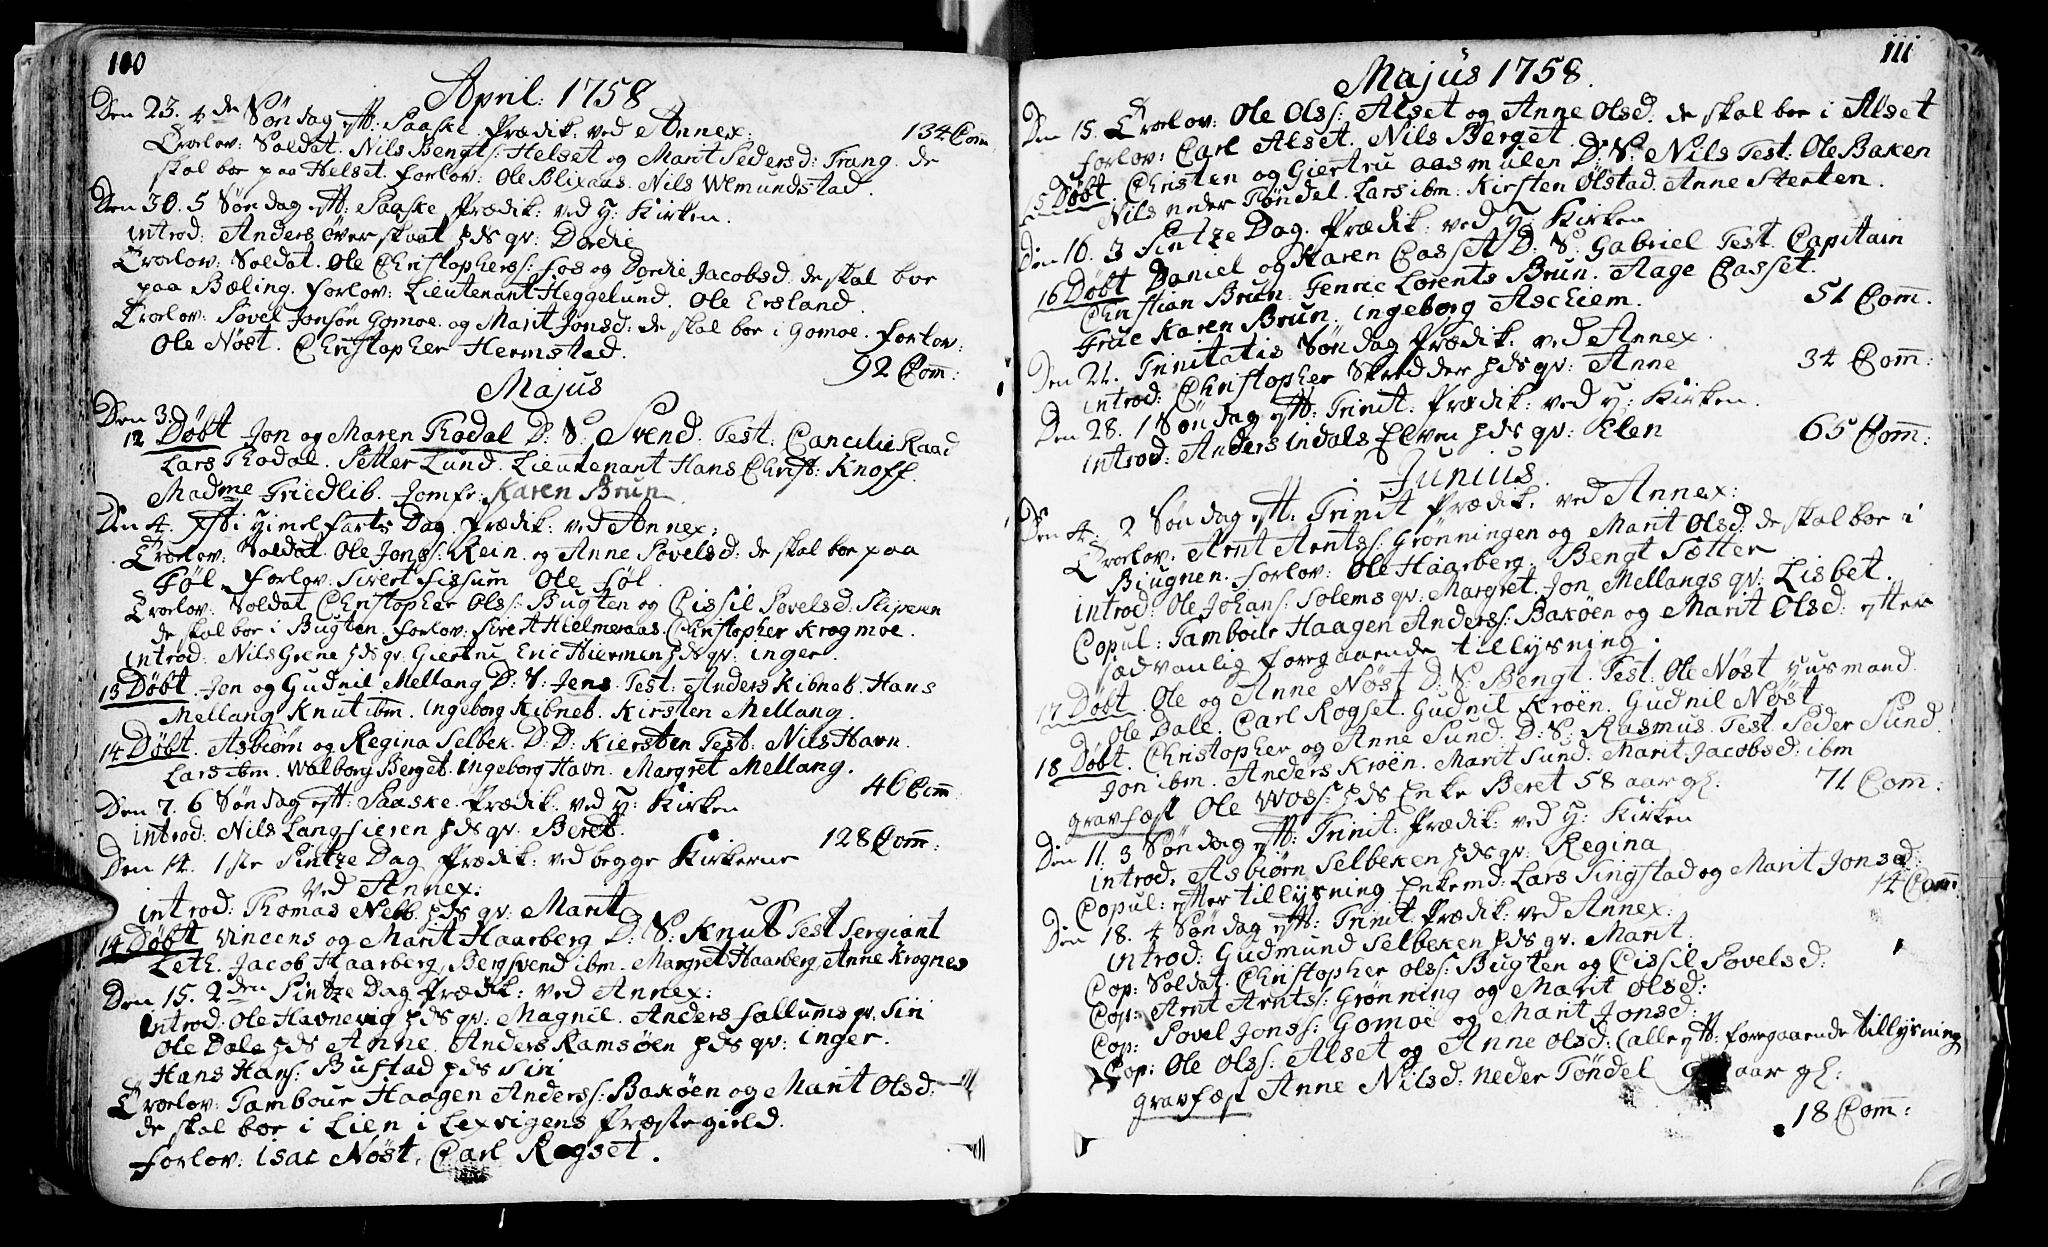 110
April: 1758
Den 23. 4de Søndag eft: Paaske. Prædik: ved Annex: 134 Com:
Trolov: Soldat. Nils Bengts: Helset og Marit Pedersd: Trang. de
skal boe paa Helset. forlov: Ole Blixaas. Nils Wemundstad.
Den 30. 5 Søndag eft: Paaske Prædik: ved H: Kirken.
introd: Anders överskaat hds qv: Dordie
Trolov: Soldat. Ole Christophers: Fos og Dordie Jacobsd: de skal boe
paa Bæling. forlov: Lieutenant Heggelund. Ole Ersland.
Trolov: Povel Jonsøn Gomoe. og Marit Jonsd: de skal boe i Gomoe. forlov:
Ole Nøst. Christopher Hermstad.
92 Com:
Majus
Den 3.
12 Døbt Jon og Maren Rodal D: S: Svend. Test: Cancelie Raad
Lars Rodal. Petter Lund. Lieutenant Hans Christ: Knoff.
Madme Friedlib. Jomfr: Karen Brun
Den 4. Xsti Himelfarts Dag Prædik: ved Annex:
Trolov: Soldat. Ole Jons: Rein. og Anne Povelsd: de skal boe paa
Føl. forlov: Sivert Fissum Ole Føl.
Trolov: Soldat Christopher Ols: Bugten og Cissil Povelsd: Slipern
de skal boe i Bugten. forlov: Sivert Hielmeraas. Christopher Krogmoe.
introd: Nils Grene hds qv: Giertru Eric Hiermen hds qv: inger.
13 Døbt. Jon og Gudnil Mellang D: S: Jens. Test: Anders Kibneb. Hans
Mellang Knut ibm. ingeborg Kibneb. Kirsten Mellang.
14 Døbt. Asbiørn og Regina Selbek. D: D: Kiersten Test: Nils Havn.
Lars ibm. Walborg Berget. ingeborg Havn. Margret Mellang.
46 Com
Den 7. 6 Søndag eft: Paaske Prædik: ved H: Kirken
introd: Nils Langsieren hds qv: Beret.
128 Com:
Den 14. 1ste Pintze Dag Prædik: ved begge Kirkerne
ved Annex:
introd: Thomas Nebb. hds qv: Marit
14 Døbt Vincens og Marit Haarberg D: S: Knut Test Sergiant
Leth. Jacob Haarberg, Bergsvend ibm. Margret Haarberg, Anne Krognes
Den 15. 2den Pintze Dag Prædik: ved Annex:
introd: Ole Havnevig hds qv: Magnil. Anders Fallums qv. Siri
Ole Dale hds Anne. Anders Ramsøen hds qv: inger.
Hans Hans: Bustad hds Siri
Trolov: Tambour Haagen Anders: Bakøen og Marit Olsd:
de skal boe i Lien i Lexvigens Præstegield.
forlov: isac Nøst, Carl Rogset.
111
Majus 1758.
Den 15. Trolov: Ole Ols: Alset og Anne Olsd. de skal boe i Alset
forlov: Carl Alset. Nils Berget.
15 Døbt. Christen og Giertru aasmulen D: S: Nils Test: Ole Baken
Nils neder Tøndel. Lars ibm: Kirsten Ølstad. Anne Sterten.
Den 16. 3 Pintze Dag. Prædik: ved H: Kirken
16 Døbt Daniel og Karen Casset D: S. Gabriel Test. Capitain
Christian Brun. Henric Lorents Brun. Aage Casset.
Frue Karen Brun. ingeborg Aschiem.
51 Com:
Den 21. Trinitatis Søndag Prædik: ved Annex.
introd: Christopher Skredder hds qv: Anne
34 Com:
Den 28. 1 Søndag eft: Trinit. Prædik: ved H: Kirken.
introd: Anders indals Elven hds qv: Elen
65 Com:
Junius.
Den 4. 2 Søndag eft: Trinit Prædik: ved Annex:
Trolov: Arnt Arnts: Grønningen og Marit Olsd: de skal boe i
Biugnen. forlov: Ole Haarberg, Bengt Sætter
introd: Ole Johans: Solems qv: Margret. Jon Mellangs qv: Lisbet.
Copul: Tambour Haagen Anders: Bakøen og Marit Olsd: efter
sædvanlig foregaaende tillysning.
17 Døbt. Ole og Anne Nøst D: S Bengt. Test: Ole Nøst Husmand
Ole Dale. Carl Rogset. Gudnil Kroën. Gudnil Nøst
18 Døbt. Christopher og Anne Sund. D: S: Rasmus Test: Peder Sund.
Jon ibm. Anders Kroën. Marit Sund. Marit Jacobsd: ibm
gravfæst Ole Wos: hds Enke Beret 58 aar gl:
71 Com:
Den 11. 3 Søndag eft: Trinit: Prædik: ved H: Kirken
introd: Asbiørn Selbeken hds qv: Regina
Copul: efter tillysning. Enkemd: Lars Singstad og Marit Jonsd:
14 Com:
Den 18. 4 Søndag eft: Trinit Prædik: ved Annex:
introd: Gudmund Selbeken hds qv. Marit.
Cop: Soldat. Christopher ols: Bugten og Cissil Povelsd:
Cop: Arnt Arnts: Grønning og Marit Olsd:
Cop: Povel Jons: Gomoe og Marit Jonsd:
Cop: Ole Ols: Alset og Anne Olsd: (alle eft: foregaaende tillysning
gravfæst Anne Nilsd: neder Tøndel aar gl:
18 Com: